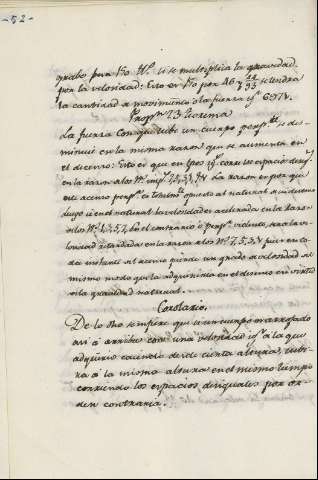 -52-
grabe para Ro. W. si se multiplica la gravedad
por la velosidad: Esto es Ro por 46 se tendra
la cantidad de movimiento o la fuerza
Propⁿ 23 Teorema
La fuerza con que sube un cuerpo se dis-
minuie en la misma razon que se aumenta en
el decenso: Esto es que en tpos ig.s corre los espacios desig.s
en la razon a los Nº imp.s 7,5,3,1 La razon es por que
este acenso es to opuesto al natural
luego si en el natural la velosidad es acelerada en la razon
a los Nº 1,3,5,7 En el contrario sera la ve-
losidad retardada en la razon a los Nº 7,5,3,1 pues en ca-
da instante al acenso pierde un grado de velosidad al
mismo modo que la adquiria en el decenso en virtud
de la gravedad natural.
Corolario.
De lo dho se infiere que si un cuerpo es arrojado
asi a arriba con una velosidad ig.l a la que
adquirio caiendo de cierta altura, subi-
ra a la misma altura en el mismo tiempo
corriendo los espacios desiguales por or-
den contrario.